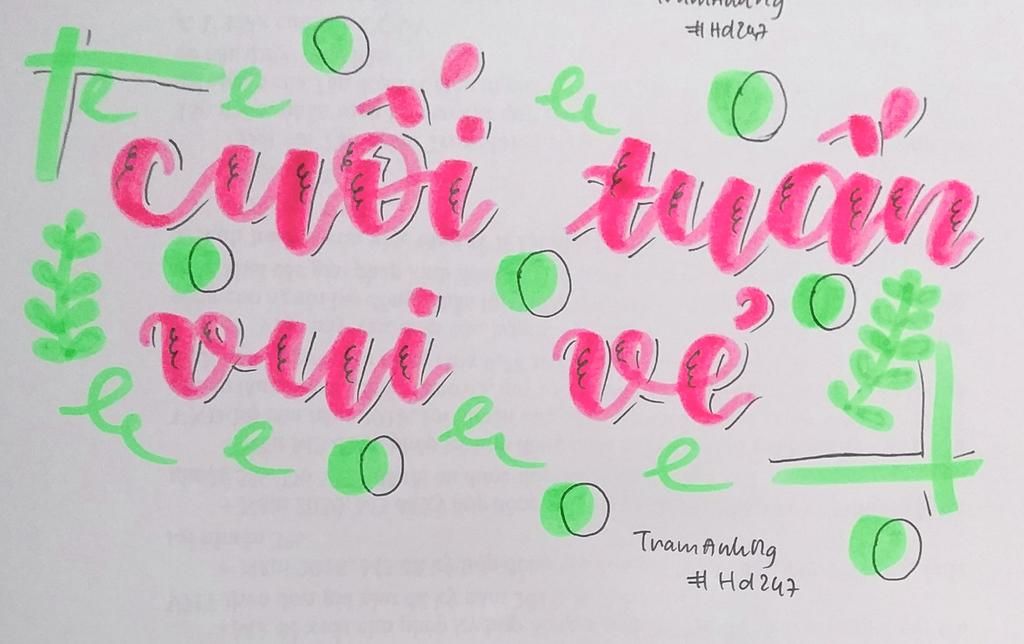 TramAnhNg
#Hd247
cuối tuần
vui vẻ
TramAnhNg
#Hd247